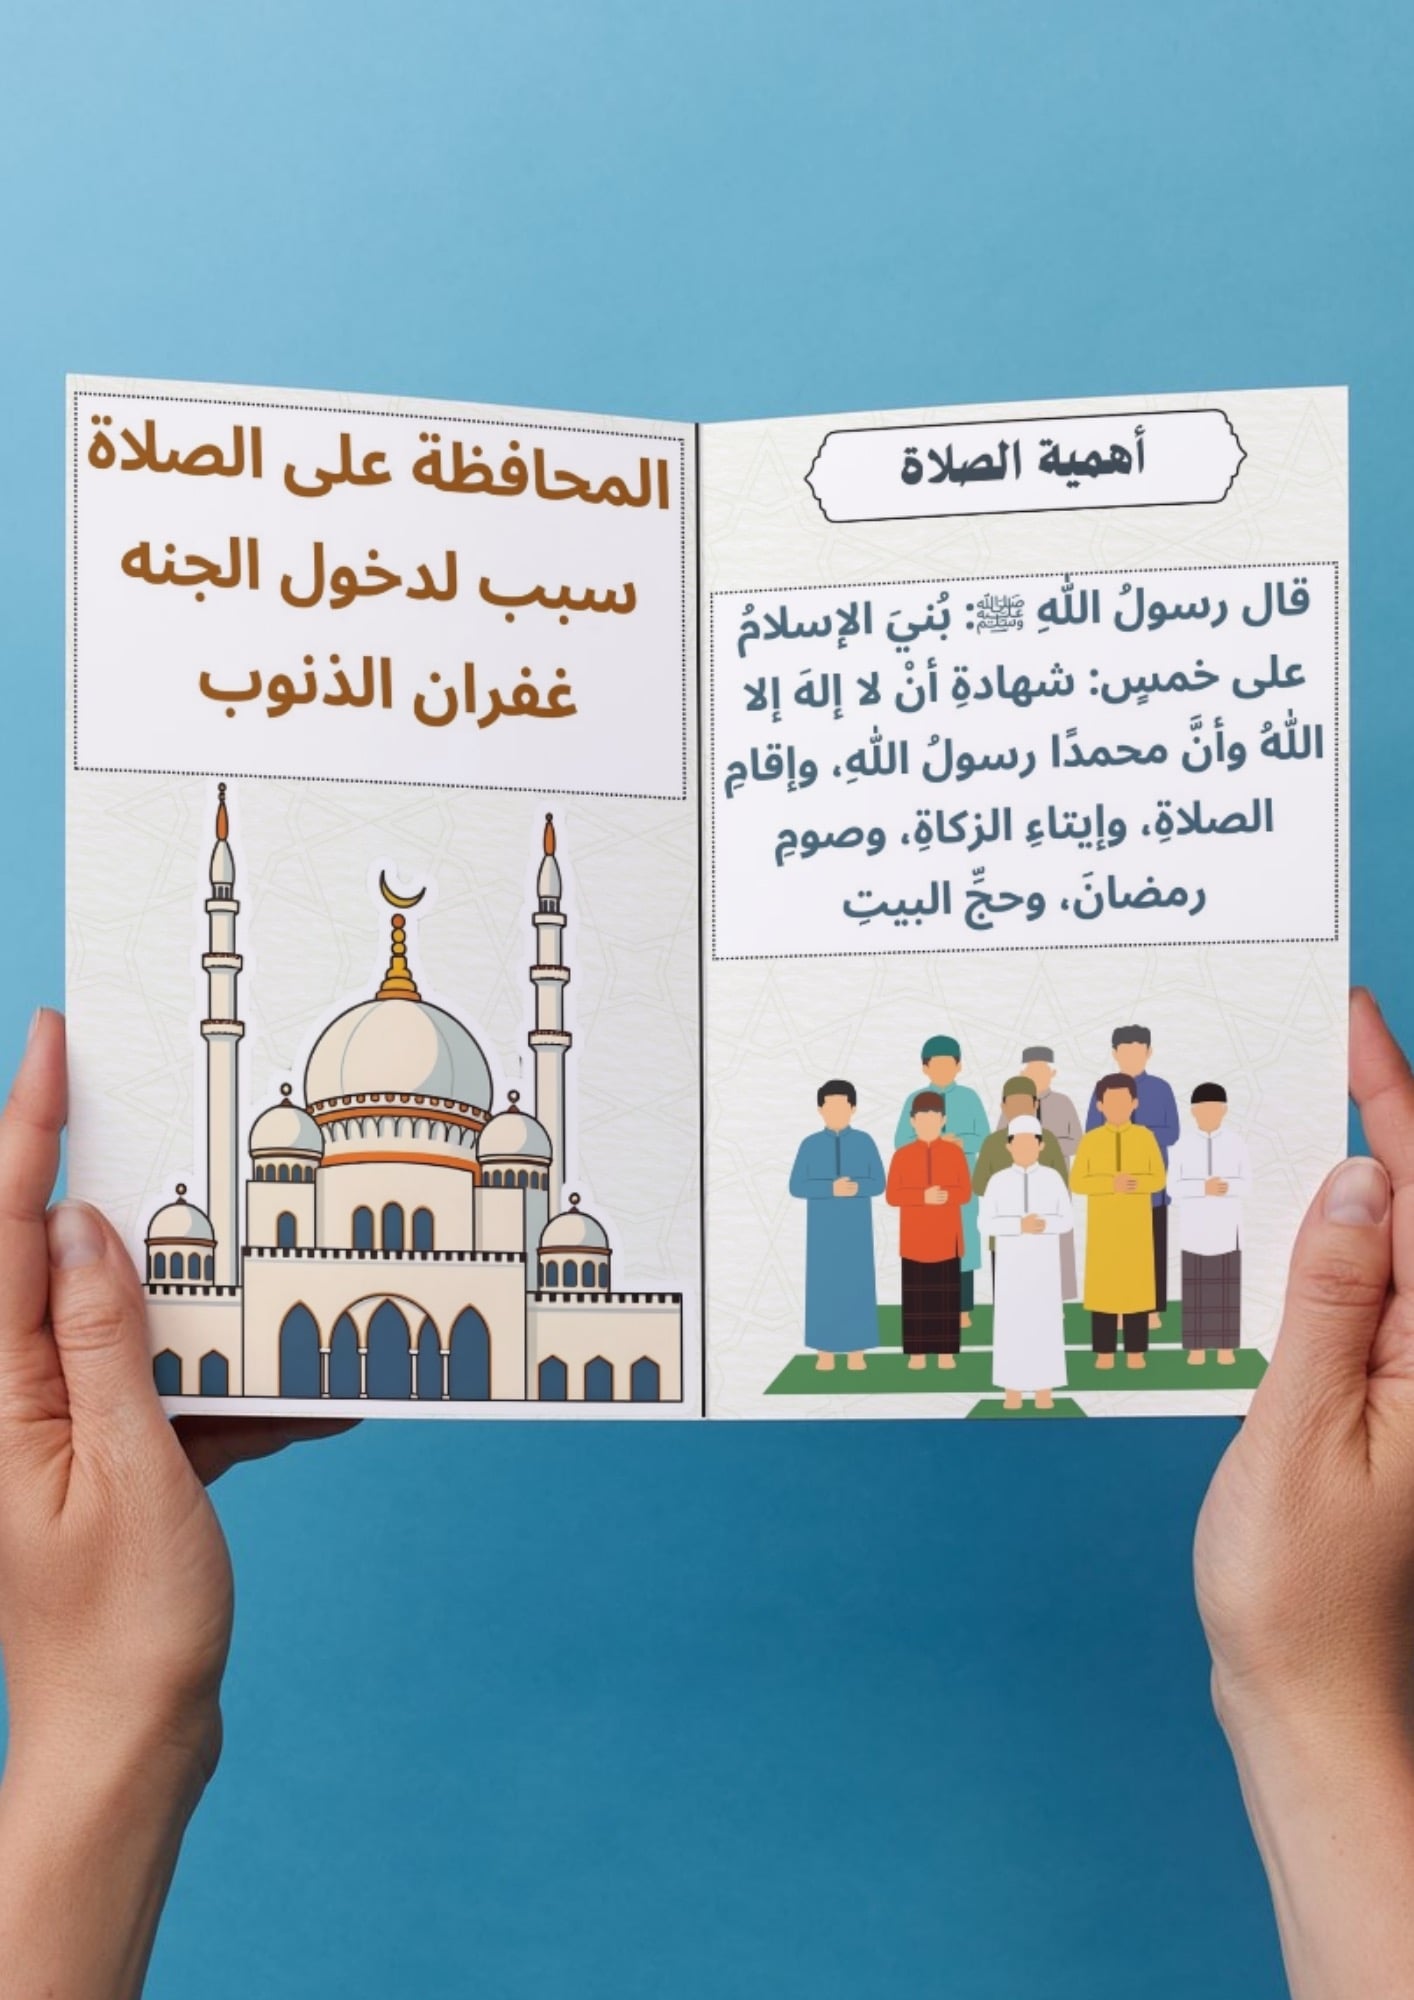 أهمية الصلاة
قال رسولُ اللهِ ﷺ: بُنيَ الإسلامُ
على خمسٍ: شهادةِ أنْ لا إلهَ إلا
اللهُ وأنَّ محمدًا رسولُ اللهِ، وإقامِ
الصلاةِ، وإيتاءِ الزكاةِ، وصومِ
رمضانَ، وحجِّ البيتِ
المحافظة على الصلاة
سبب لدخول الجنه
غفران الذنوب